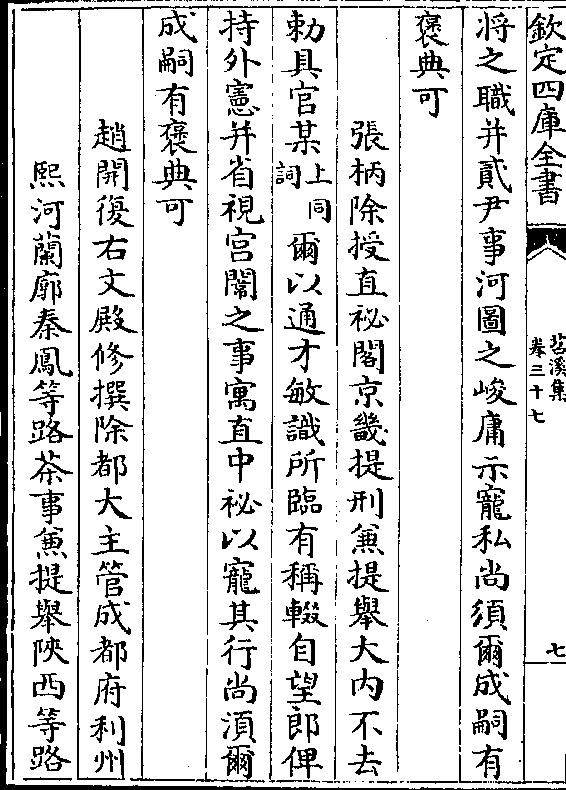 欽定四庫全書
苕溪集
卷三十七
七
將之職并貳尹事河圖之峻庸示寵私尚須爾成嗣有
褒典可
張柄除授直祕閣京畿提刑兼提舉大内不去
勅具官某上同詞爾以通才敏識所臨有稱輟自望郎俾
持外憲并省視宫闈之事寓直中祕以寵其行尚須爾
成嗣有褒典可
趙開復右文殿修撰除都大主管成都府利州
熙河蘭廓秦鳳等路茶事兼提舉陝西等路